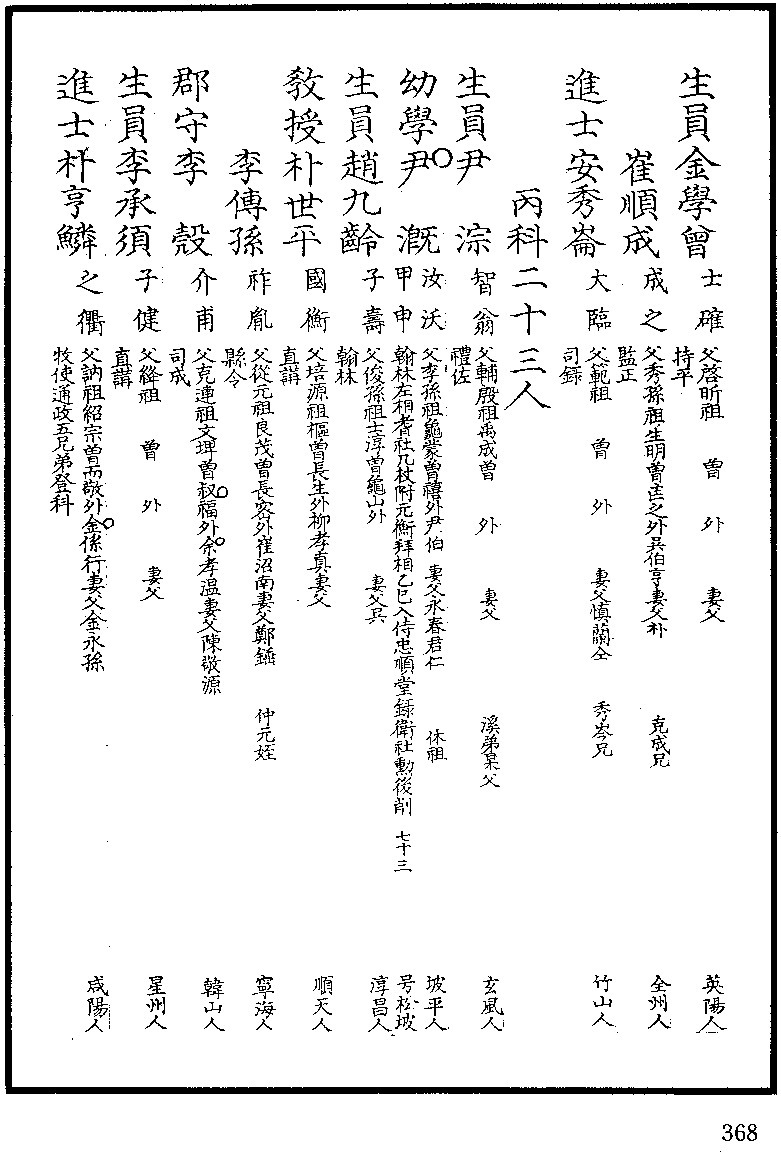 生員金學曾 士確 父啓昕祖 曾 外 妻父 英陽人
持平
崔順成 成之 父秀孫祖生明曾 之外吳伯亨妻父朴 克成兄 全州人
監正
進士安秀崙 大臨 父範祖 曾 外 妻父慎蘭仝 秀岑兄 竹山人
司錄
丙科二十三人
生員尹淙 智翁 父輔殷祖禹成曾 外 妻父 溪弟杲父 玄風人
禮佐
幼學尹漑 汝沃 父李孫祖龜蒙曾禧外尹伯 妻父永春君仁 休祖 坡平人
甲申 翰林左相耆社几杖附元衡拜相乙巳入侍忠順堂錄衛社勳後削 七十三 号松坡
生員趙九齡 子壽 父俊孫祖士淳曾龜山外 妻父吳 淳昌人
翰林
敎授朴世平 國衡 父培源祖樞曾長生外柳孝真妻父 順天人
直講
李傳孫 祚胤 父從元祖良茂曾長密外崔沼南妻父鄭錘 仲元姪 寧海人
縣令
郡守李殼 介甫 父克連祖文埤曾叔福外余孝溫妻父陳敬源 韓山人
司成
生員李承須 子健 父絳祖 曾 外 妻父 星州人
直講
進士朴亨鱗 之衢 父訥祖紹宗曾而敬外金係行妻父金永孫 咸陽人
牧使通政五兄弟登科
368